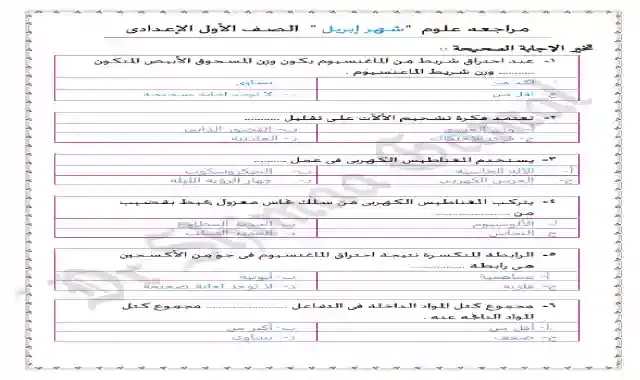 مراجعه علوم "شهر إبريل" الصف الأول الإعدادى
تخير الاجابة الصحيحة :
١- عند احتراق شريط من الماغنسيوم يكون وزن المسحوق الأبيض المتكون
.......... وزن شريط الماغنسيوم .
أ- أكبر من ب- يساوى
ج- أقل من د- لا توجد اجابة صحيحة
٢- تعتمد فكرة تشحيم الآلات على تقليل ..........
ب- القصور الذاتى
ج- قوى الاحتكاك د-
٣- يستخدم المغناطيس الكهربى فى عمل ..........
أ- الآلة الحاسبة ب- الميكروسكوب
ج- الجرس الكهربى د- جهاز الرؤية الليلية
٤- يتركب المغناطيس الكهربى من سلك نحاس معزول يحيط بقضيب
من ..................
أ- الألومنيوم ب- الحديد المطاوع
ج- النحاس د- الحديد الصلب
٥- الرابطة المنكسرة نتيجة احتراق الماغنسيوم فى جو من الأكسجين
هى رابطة ............
أ- تساهمية ب- أيونية
ج- فلزية د- لا توجد اجابة صحيحة
٦- مجموع كتل المواد الداخلة فى التفاعل .................. مجموع كتل
المواد الناتجه عنه .
أ- أقل من ب- أكبر من
ج- ضعف د- يساوى
Dr Shymaa